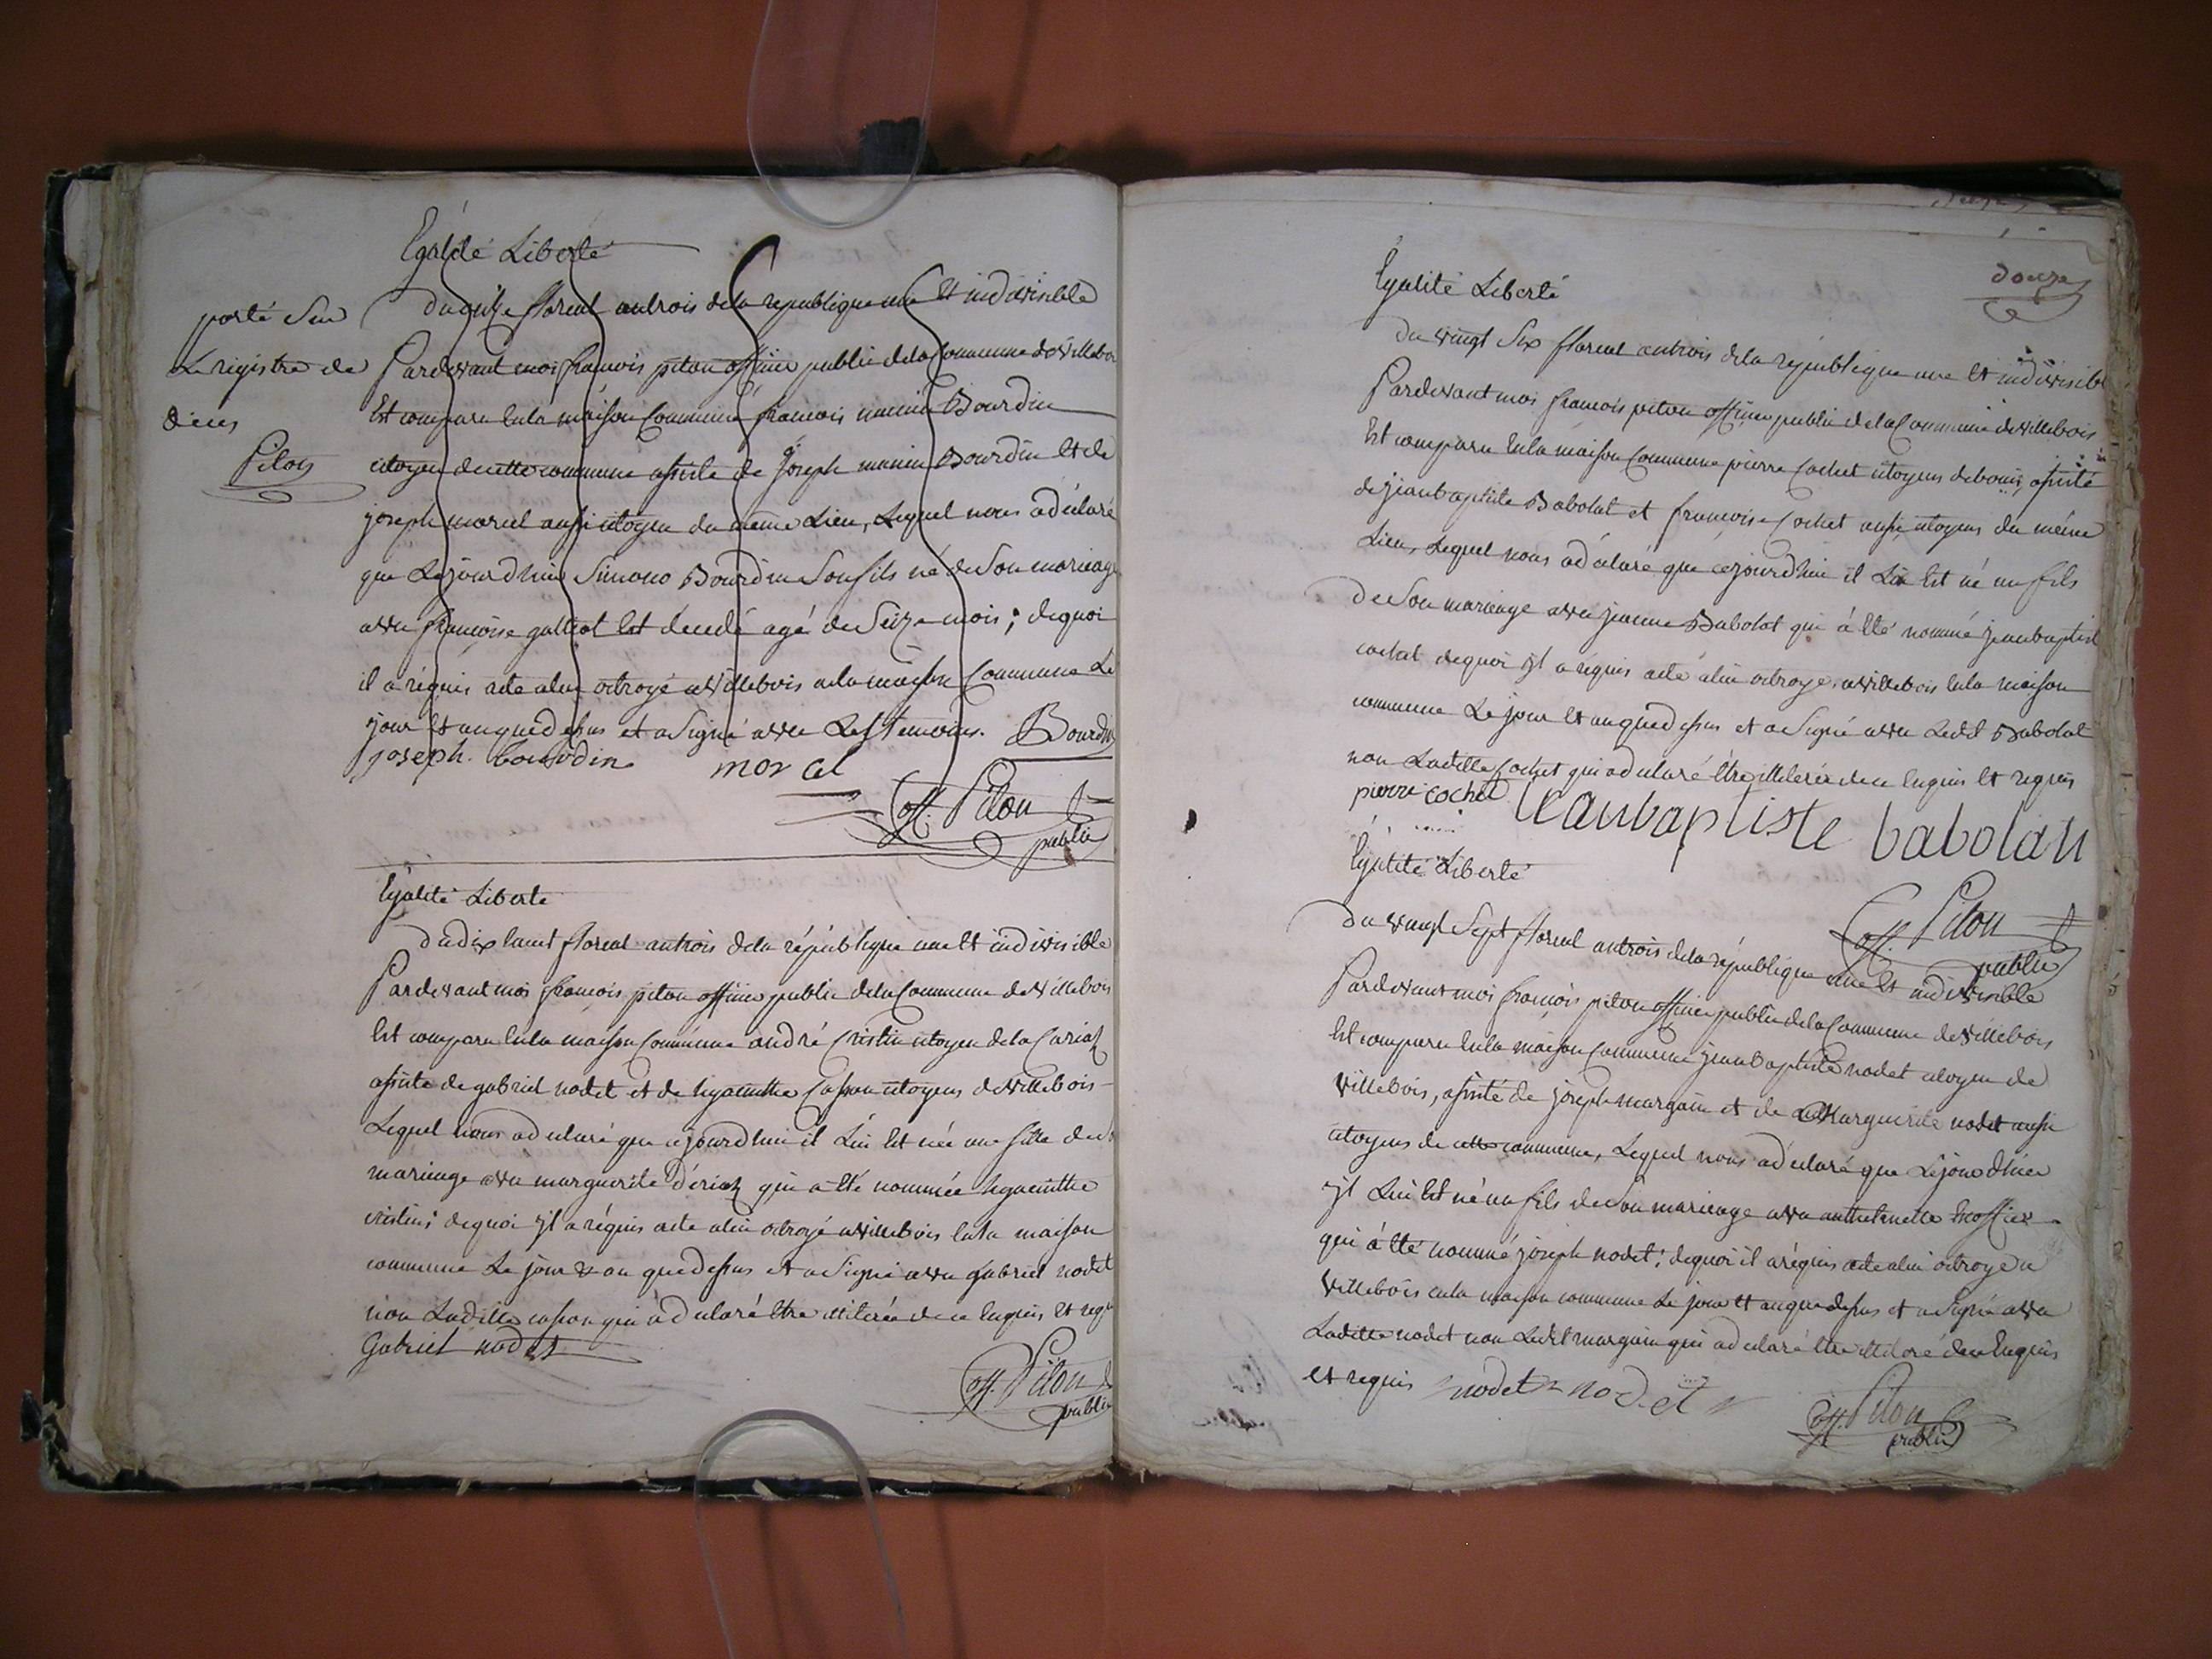 Egalité Liberté
du quinze floreal an trois de la republique une et indivisible
porté sur
Le registre de
deces
Piloz
Pardevant moi françois piton officier public de la Commune de Villebois
Est comparu en la maison Commune françois Bourdin
citoyen de cette commune assisté de Joseph Bourdin et de
joseph morel aussi citoyen du même Lieu, Lequel nous a déclaré
que Cejourdhui Simono Bourdin Son fils né de Son mariage
avec françoise galliot Est décédé agé de Seize mois ; dequoi
il a réquis acte a lui octroyé a Villebois en la maison Commune Le
jour Et an que dessus et a Signé avec Les témoins. Bourdin
joseph. bourdin morel
off. Piton
public
Egalité Liberté
du dix huit floreal an trois de la république une Et indivisible
Pardevant moi françois piton officier public de la Commune de Villebois
Est comparu En la maison Commune andré Cristin citoyen de la
assisté de gabriel nodet et de hyacinthe Casson citoyens de Villebois
Lequel nous a déclaré que cejourdhui il Lui Est née une fille de
mariage avec marguerite dériaz qui a Eté nommée hyacinthe
cristin ; dequoi yl a réquis acte a lui octroyé a Villebois En la maison
commune Le jour & an que dessus et a Signé avec gabriel nodet
non Ladite casson qui a déclaré Etre illiterée de ce Enquis Et requ
Gabriel nodet
off. Piton
public
douze
Egalité Liberté
du vingt Six floreal an trois de la république une Et indivisible
Pardevant moi françois piton officier public de la Commune de Villebois
Est comparu En la maison Commune pierre Cochet citoyen de bouis, assisté
de jean baptiste Babolat et françoise Cochet aussi citoyens du même
Lieu, Lequel nous a déclaré que cejourdhui il Lui Est né un fils
de Son mariage avec jeanne Babolat qui à Eté nommé jean baptiste
cochet dequoi yl a réquis acte a lui octroyé a Villebois En la maison
commune Le jour Et an que dessus et a Signé avec Ledit Babolat
non Ladite Cochet qui a déclaré Etre illiterée de ce Enquis Et requis
pierre cochet Jeanbaptiste babolat
off. Piton
public
Egalité Liberté
du vingt Sept floreal an trois de la république une Et indivisible
Pardevant moi françois piton officier public de la Commune de Villebois
Est comparu En la maison Commune jean Baptiste nodet citoyen de
Villebois, assisté de joseph margain et de Marguerite nodet aussi
citoyens de cette commune, Lequel nous a déclaré que Cejourdhui
yl Lui Est né un fils de Son mariage avec anthelmette Escoffier
qui à Eté nommé joseph nodet ; dequoi il a réquis acte a lui octroyé a
Villebois en la maison commune Le jour Et an que dessus et a Signé avec
Ladite nodet non Ledit margain qui a déclaré Etre illiteré de ce Enquis
et requis nodet nodet
off. Piton
public